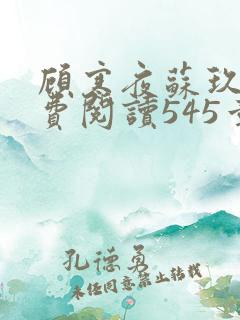 顧寒夜蘇玖
費閱讀545
孔德勇
未任同意禁止转载